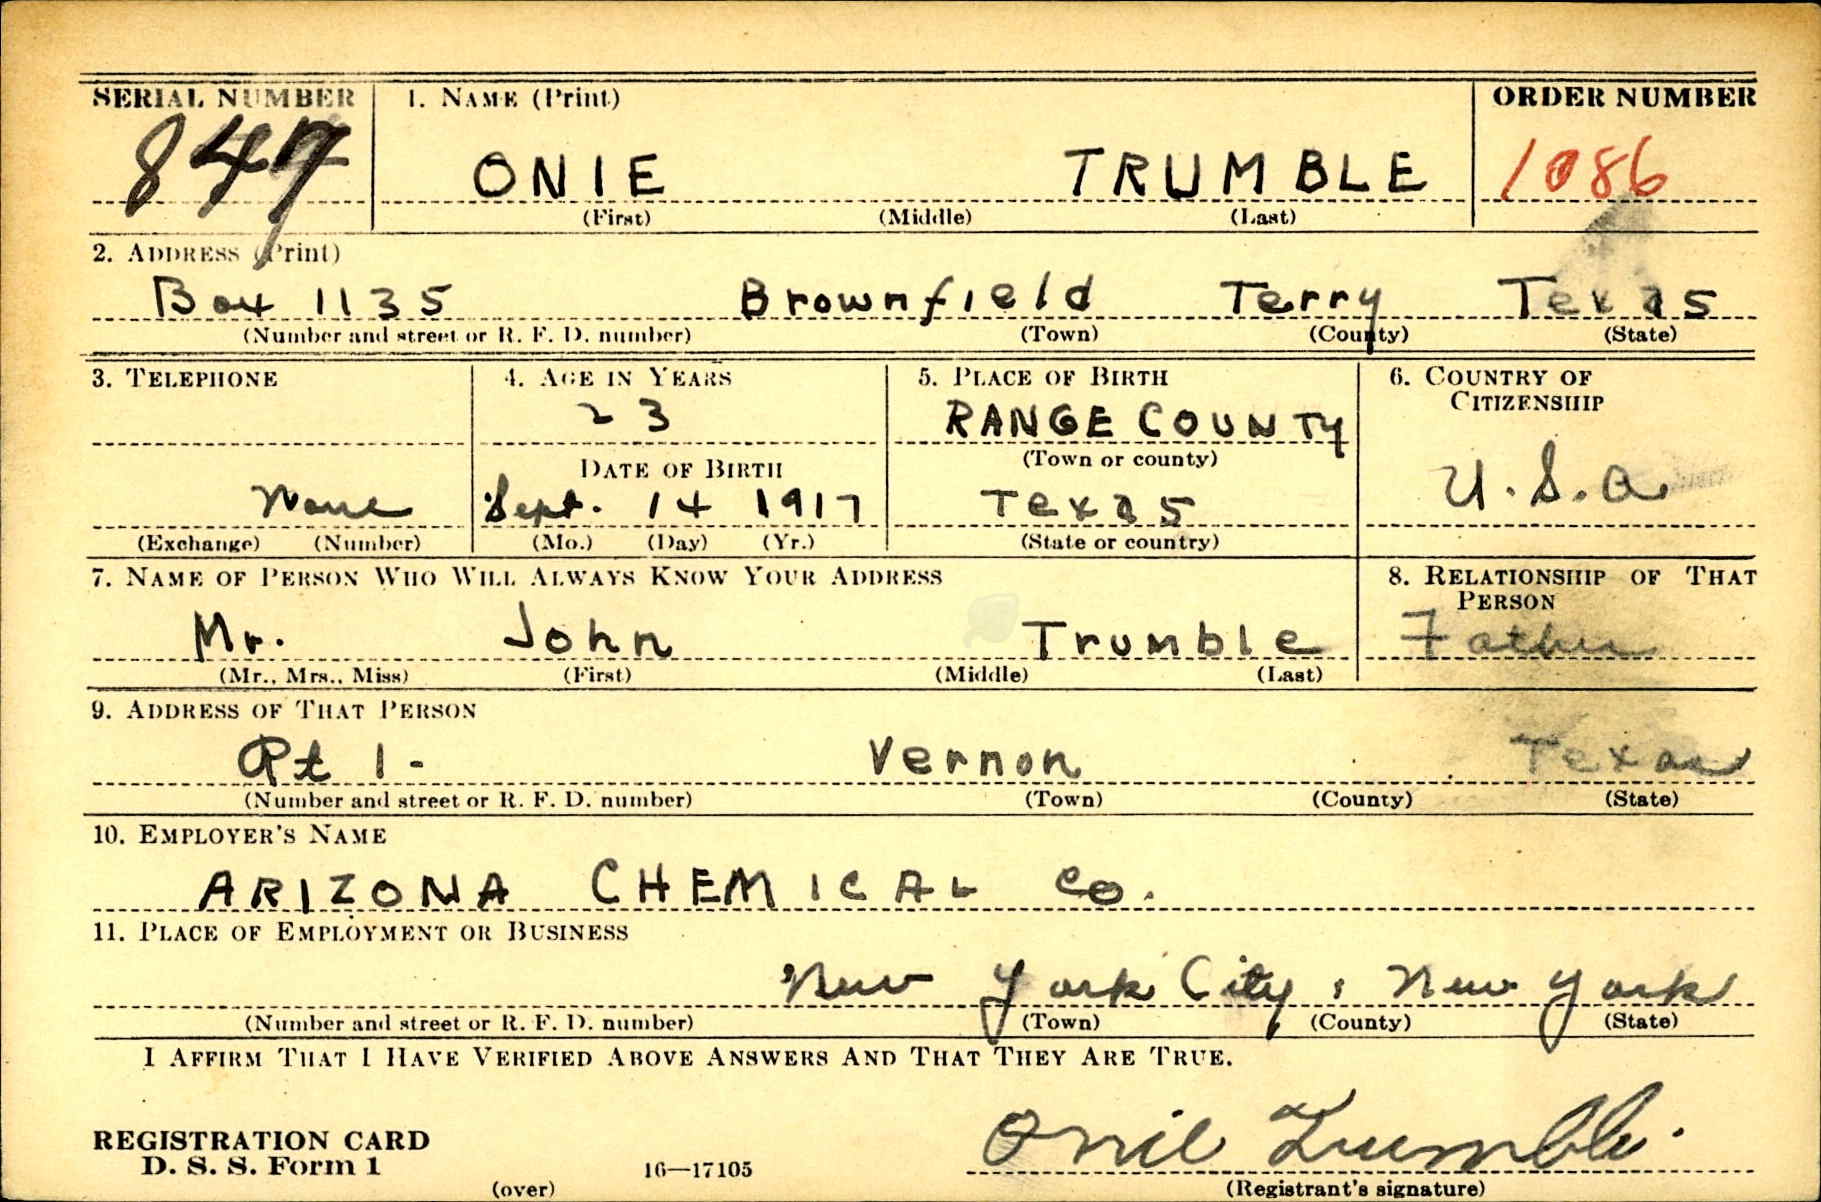 SERIAL NUMBER
847
1. NAME (Print)
ONIE TRUMBLE
(First) (Middle) (Last)
ORDER NUMBER
1086
2. ADDRESS (Print)
Box 1135 Brownfield Terry Texas
(Number and street or R. F. D. number) (Town) (County) (State)
3. TELEPHONE
None
(Exchange) (Number)
4. AGE IN YEARS
23
DATE OF BIRTH
Sept. 14 1917
(Mo.) (Day) (Yr.)
5. PLACE OF BIRTH
RANGE COUNTY
(Town or county)
Texas
(State or country)
6. COUNTRY OF
CITIZENSHIP
U.S.A
7. NAME OF PERSON WHO WILL ALWAYS KNOW YOUR ADDRESS
Mr. John Trumble
(Mr., Mrs., Miss) (First) (Middle) (Last)
8. RELATIONSHIP OF THAT
PERSON
Father
9. ADDRESS OF THAT PERSON
Rt 1- Vernon Texas
(Number and street or R. F. D. number) (Town) (County) (State)
10. EMPLOYER'S NAME
ARIZONA CHEMICAL Co.
11. PLACE OF EMPLOYMENT OR BUSINESS
New York City, New York
(Number and street or R. F. D. number) (Town) (County) (State)
I AFFIRM THAT I HAVE VERIFIED ABOVE ANSWERS AND THAT THEY ARE TRUE.
REGISTRATION CARD
D. S. S. Form 1
(over)
16—17105
Onie Trumble.
(Registrant's signature)